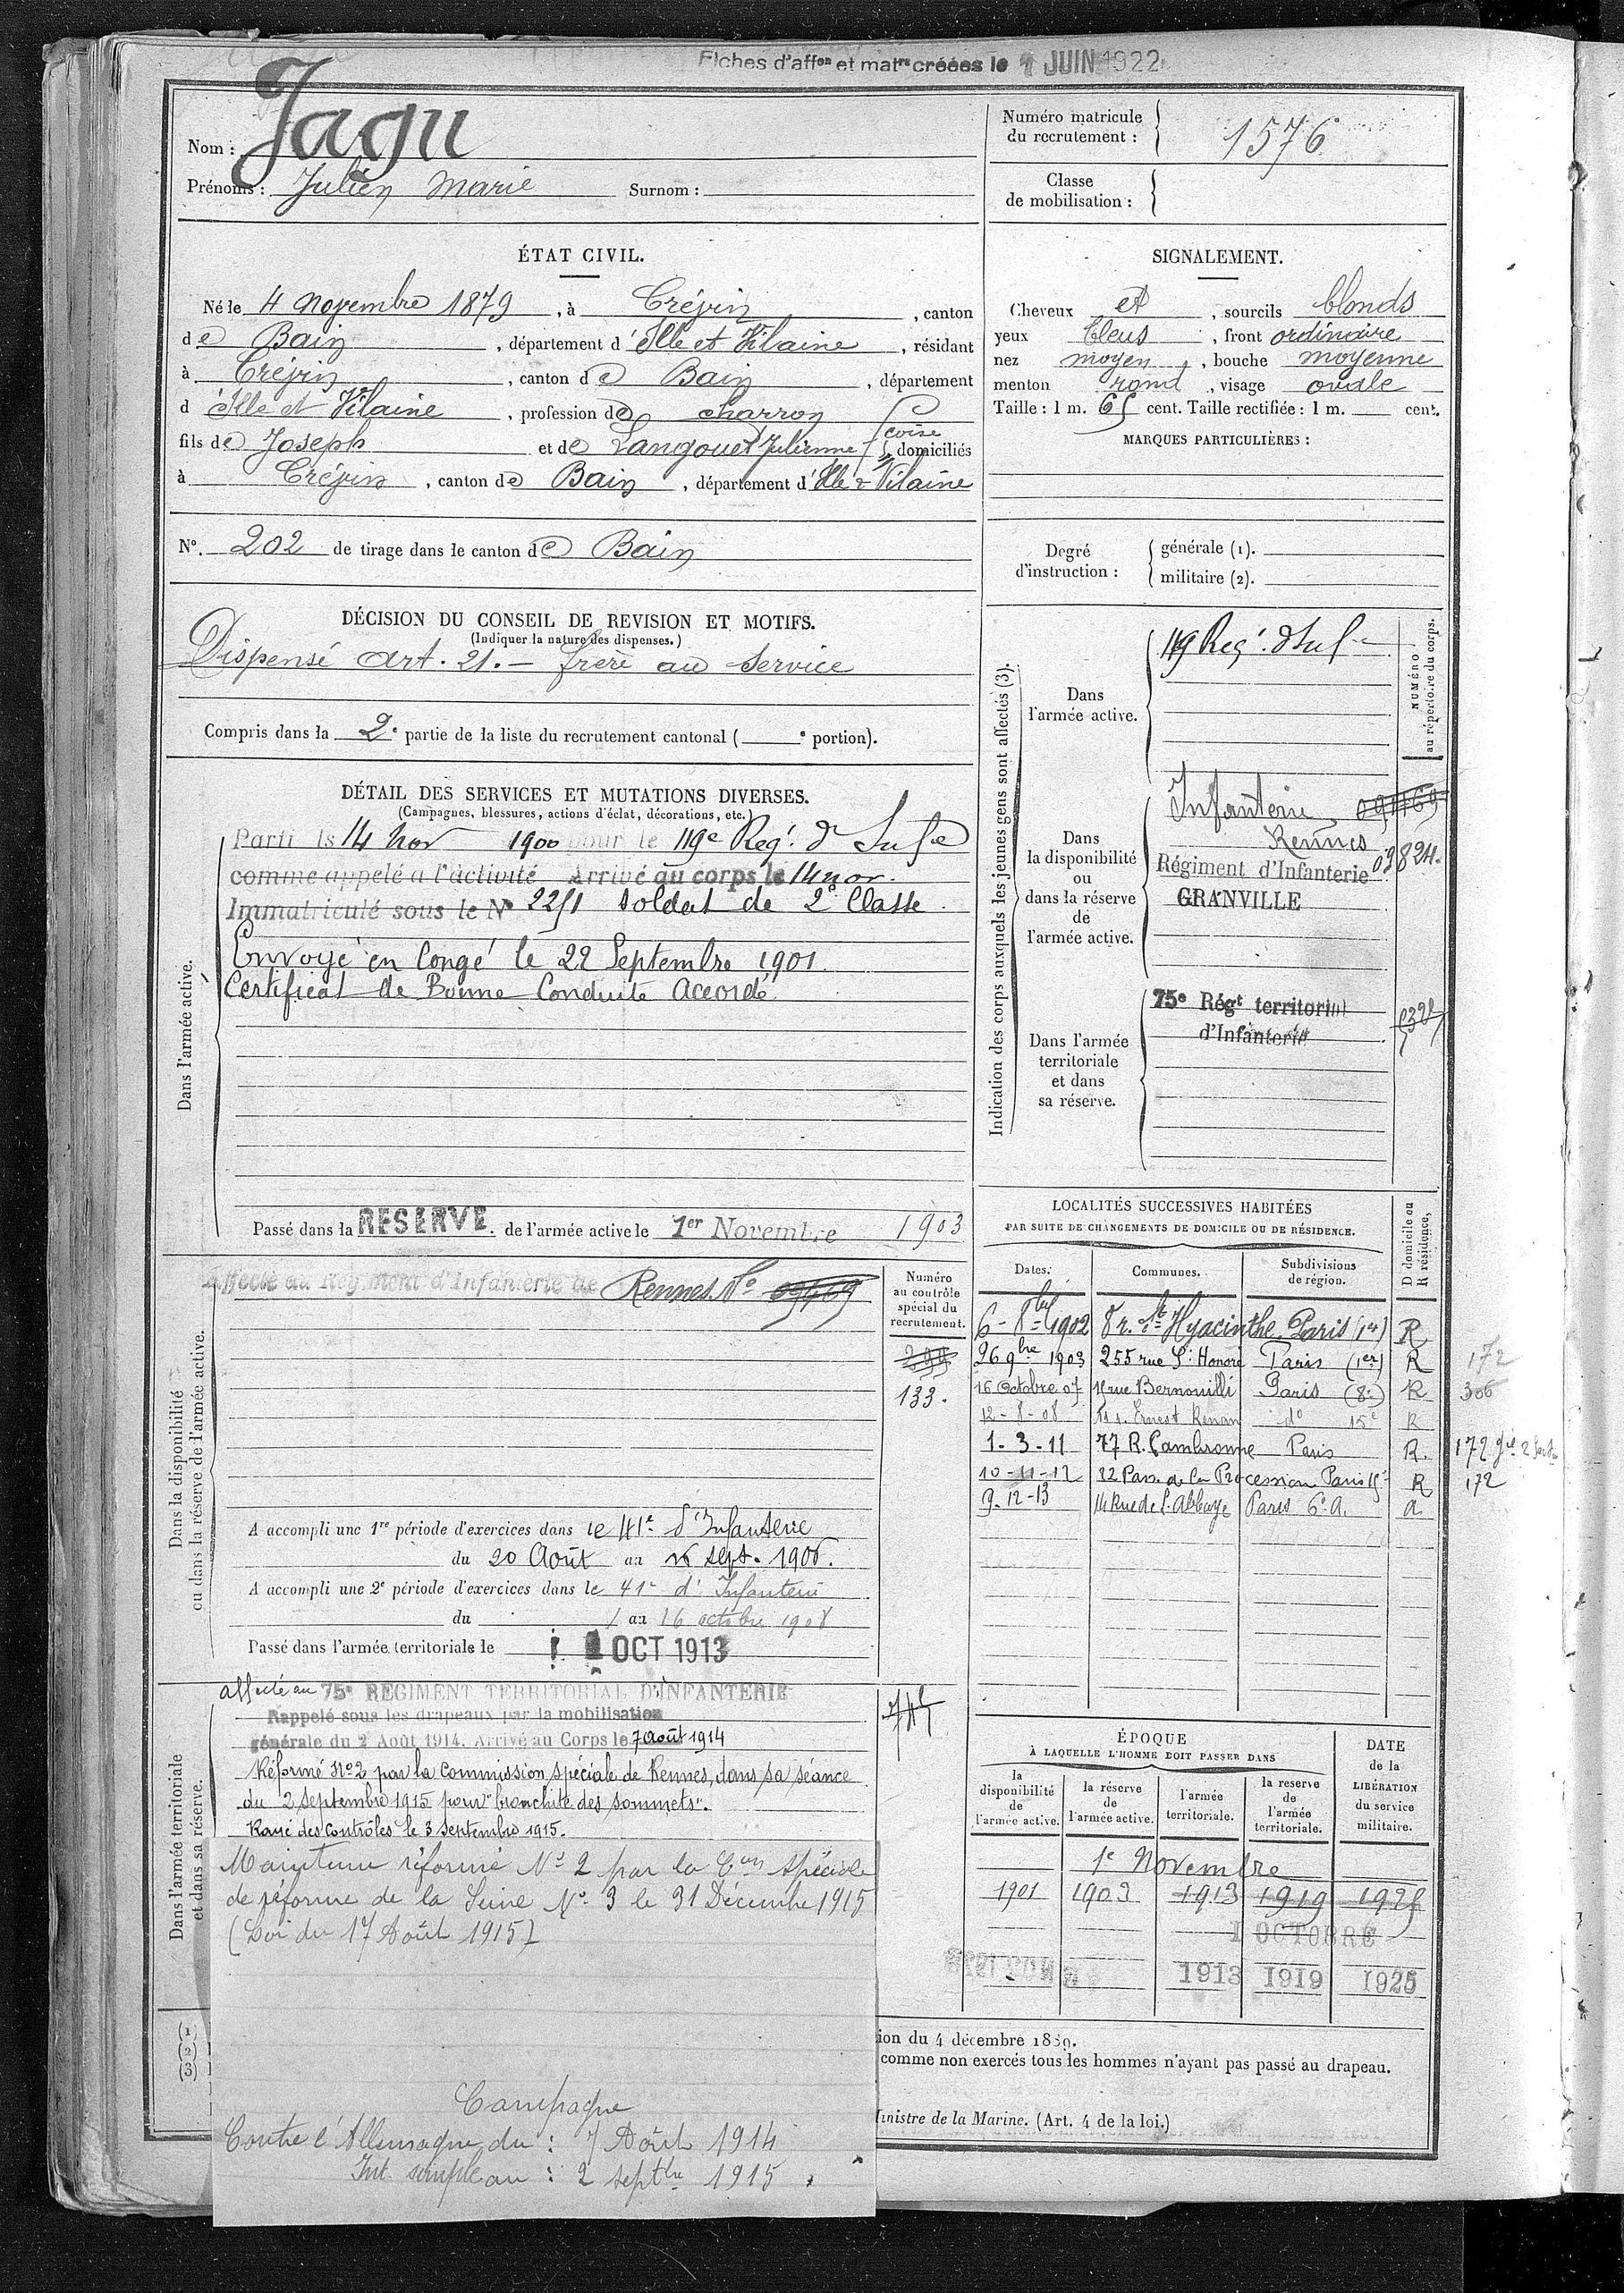 Fiches d'affon et matre créées le 1 JUIN 1922
Nom : Jagu
Prénoms : Julien Marie Surnom :
Numéro matricule
du recrutement : 1576
Classe
de mobilisation :
ÉTAT CIVIL.
Né le 4 novembre 1879, à Crévin, canton
de Bain, département d'Ille et Vilaine, résidant
à Crévin, canton de Bain, département
d'Ille et Vilaine, profession de charron
fils de Joseph et de Langouet Julienne domiciliés
à Crévin, canton de Bain, département d'Ille & Vilaine
N°. 202 de tirage dans le canton de Bain
SIGNALEMENT.
Cheveux et, sourcils blonds
yeux bleus, front ordinaire
nez moyen, bouche moyenne
menton rond, visage ovale
Taille : 1 m. 65 cent. Taille rectifiée : 1 m. cent.
MARQUES PARTICULIÈRES :
Degré
d'instruction :
générale (1).
militaire (2).
DÉCISION DU CONSEIL DE REVISION ET MOTIFS.
(Indiquer la nature des dispenses.)
Dispensé art. 21. - frère au service
Compris dans la 2e partie de la liste du recrutement cantonal ( e portion).
DÉTAIL DES SERVICES ET MUTATIONS DIVERSES.
(Campagnes, blessures, actions d'éclat, décorations, etc.)
Dans l'armée active.
Parti le 14 Nov 1900 pour le 119e Reg.t d'Infie
comme appelé à l'activité Arrivé au corps le 14 nov.
Immatriculé sous le N° 2251 soldat de 2e Classe.
Envoyé en Congé le 22 Septembre 1901.
Certificat de Bonne Conduite Accordé
Passé dans la RESERVE. de l'armée active le 1er Novembre 1903
Indication des corps auxquels les jeunes gens sont affectés (3).
NUMÉRO
au répertoire du corps.
Dans
l'armée active.
119 Reg.t d'Inf.ie
Dans
la disponibilité
ou
dans la réserve
de
l'armée active.
Infanterie 09469
Rennes
Régiment d'Infanterie 03824.
GRANVILLE
Dans l'armée
territoriale
et dans
sa réserve.
75e Régt territorial
d'Infanterie
Dans la disponibilité
ou dans la réserve de l'armée active.
Affecté au Régiment d'Infanterie de Rennes N° 09469
Numéro
au contrôle
spécial du
recrutement.
133.
A accompli une 1re période d'exercices dans le 41e d'Infanterie
du 20 Août au 16 sept. 1906.
A accompli une 2e période d'exercices dans le 41e d'Infanterie
du au 16 octobre 1908
Passé dans l'armée territoriale le 1 OCT 1913
LOCALITÉS SUCCESSIVES HABITÉES
PAR SUITE DE CHANGEMENTS DE DOMICILE OU DE RÉSIDENCE.
D domicile ou
R résidence,
Dates. Communes. Subdivisions de région.
6 - 8bre 1902 8 r. St Hyacinthe Paris (1er) R
26 9bre 1903 255 rue St Honoré Paris (1er) R 172
16 Octobre 07 11 rue Bernouilli Paris (8e) R 306
12 - 8 - 08 11 r. Ernest Renan do 15e R
1 - 3 - 11 77 R. Cambronne Paris R. 172
10 - 11 - 12 22 Pass. de la Procession Paris 15e R 172
9. 12 - 13 14 Rue de l'Abbaye Paris 6e A.
Dans l'armée territoriale
et dans sa réserve.
affecté au 75e REGIMENT TERRITORIAL D'INFANTERIE
Rappelé sous les drapeaux par la mobilisation
générale du 2 Août 1914. Arrivé au Corps le 7 août 1914
Réformé N°2 par la Commission spéciale de Rennes, dans sa séance
du 2 septembre 1915 pour "bronchite des sommets".
Rayé des Contrôles le 3 septembre 1915.
Maintenu réformé N° 2 par la Con spéciale
de réforme de la Seine N° 3 le 31 Décembre 1915
(Loi du 17 Août 1915)
Campagne
Contre l'Allemagne du : 7 Août 1914
Int. simple au : 2 septbre 1915
ÉPOQUE
À LAQUELLE L'HOMME DOIT PASSER DANS
la disponibilité de l'armée active.
la réserve de l'armée active.
l'armée territoriale.
la reserve de l'armée territoriale.
DATE de la LIBÉRATION du service militaire.
1e Novembre
1901 1903 1913 1919 1925
1 OCTOBRE
1913 1919 1925
(1)
(2)
(3)
ion du 4 décembre 1889.
comme non exercés tous les hommes n'ayant pas passé au drapeau.
inistre de la Marine. (Art. 4 de la loi.)